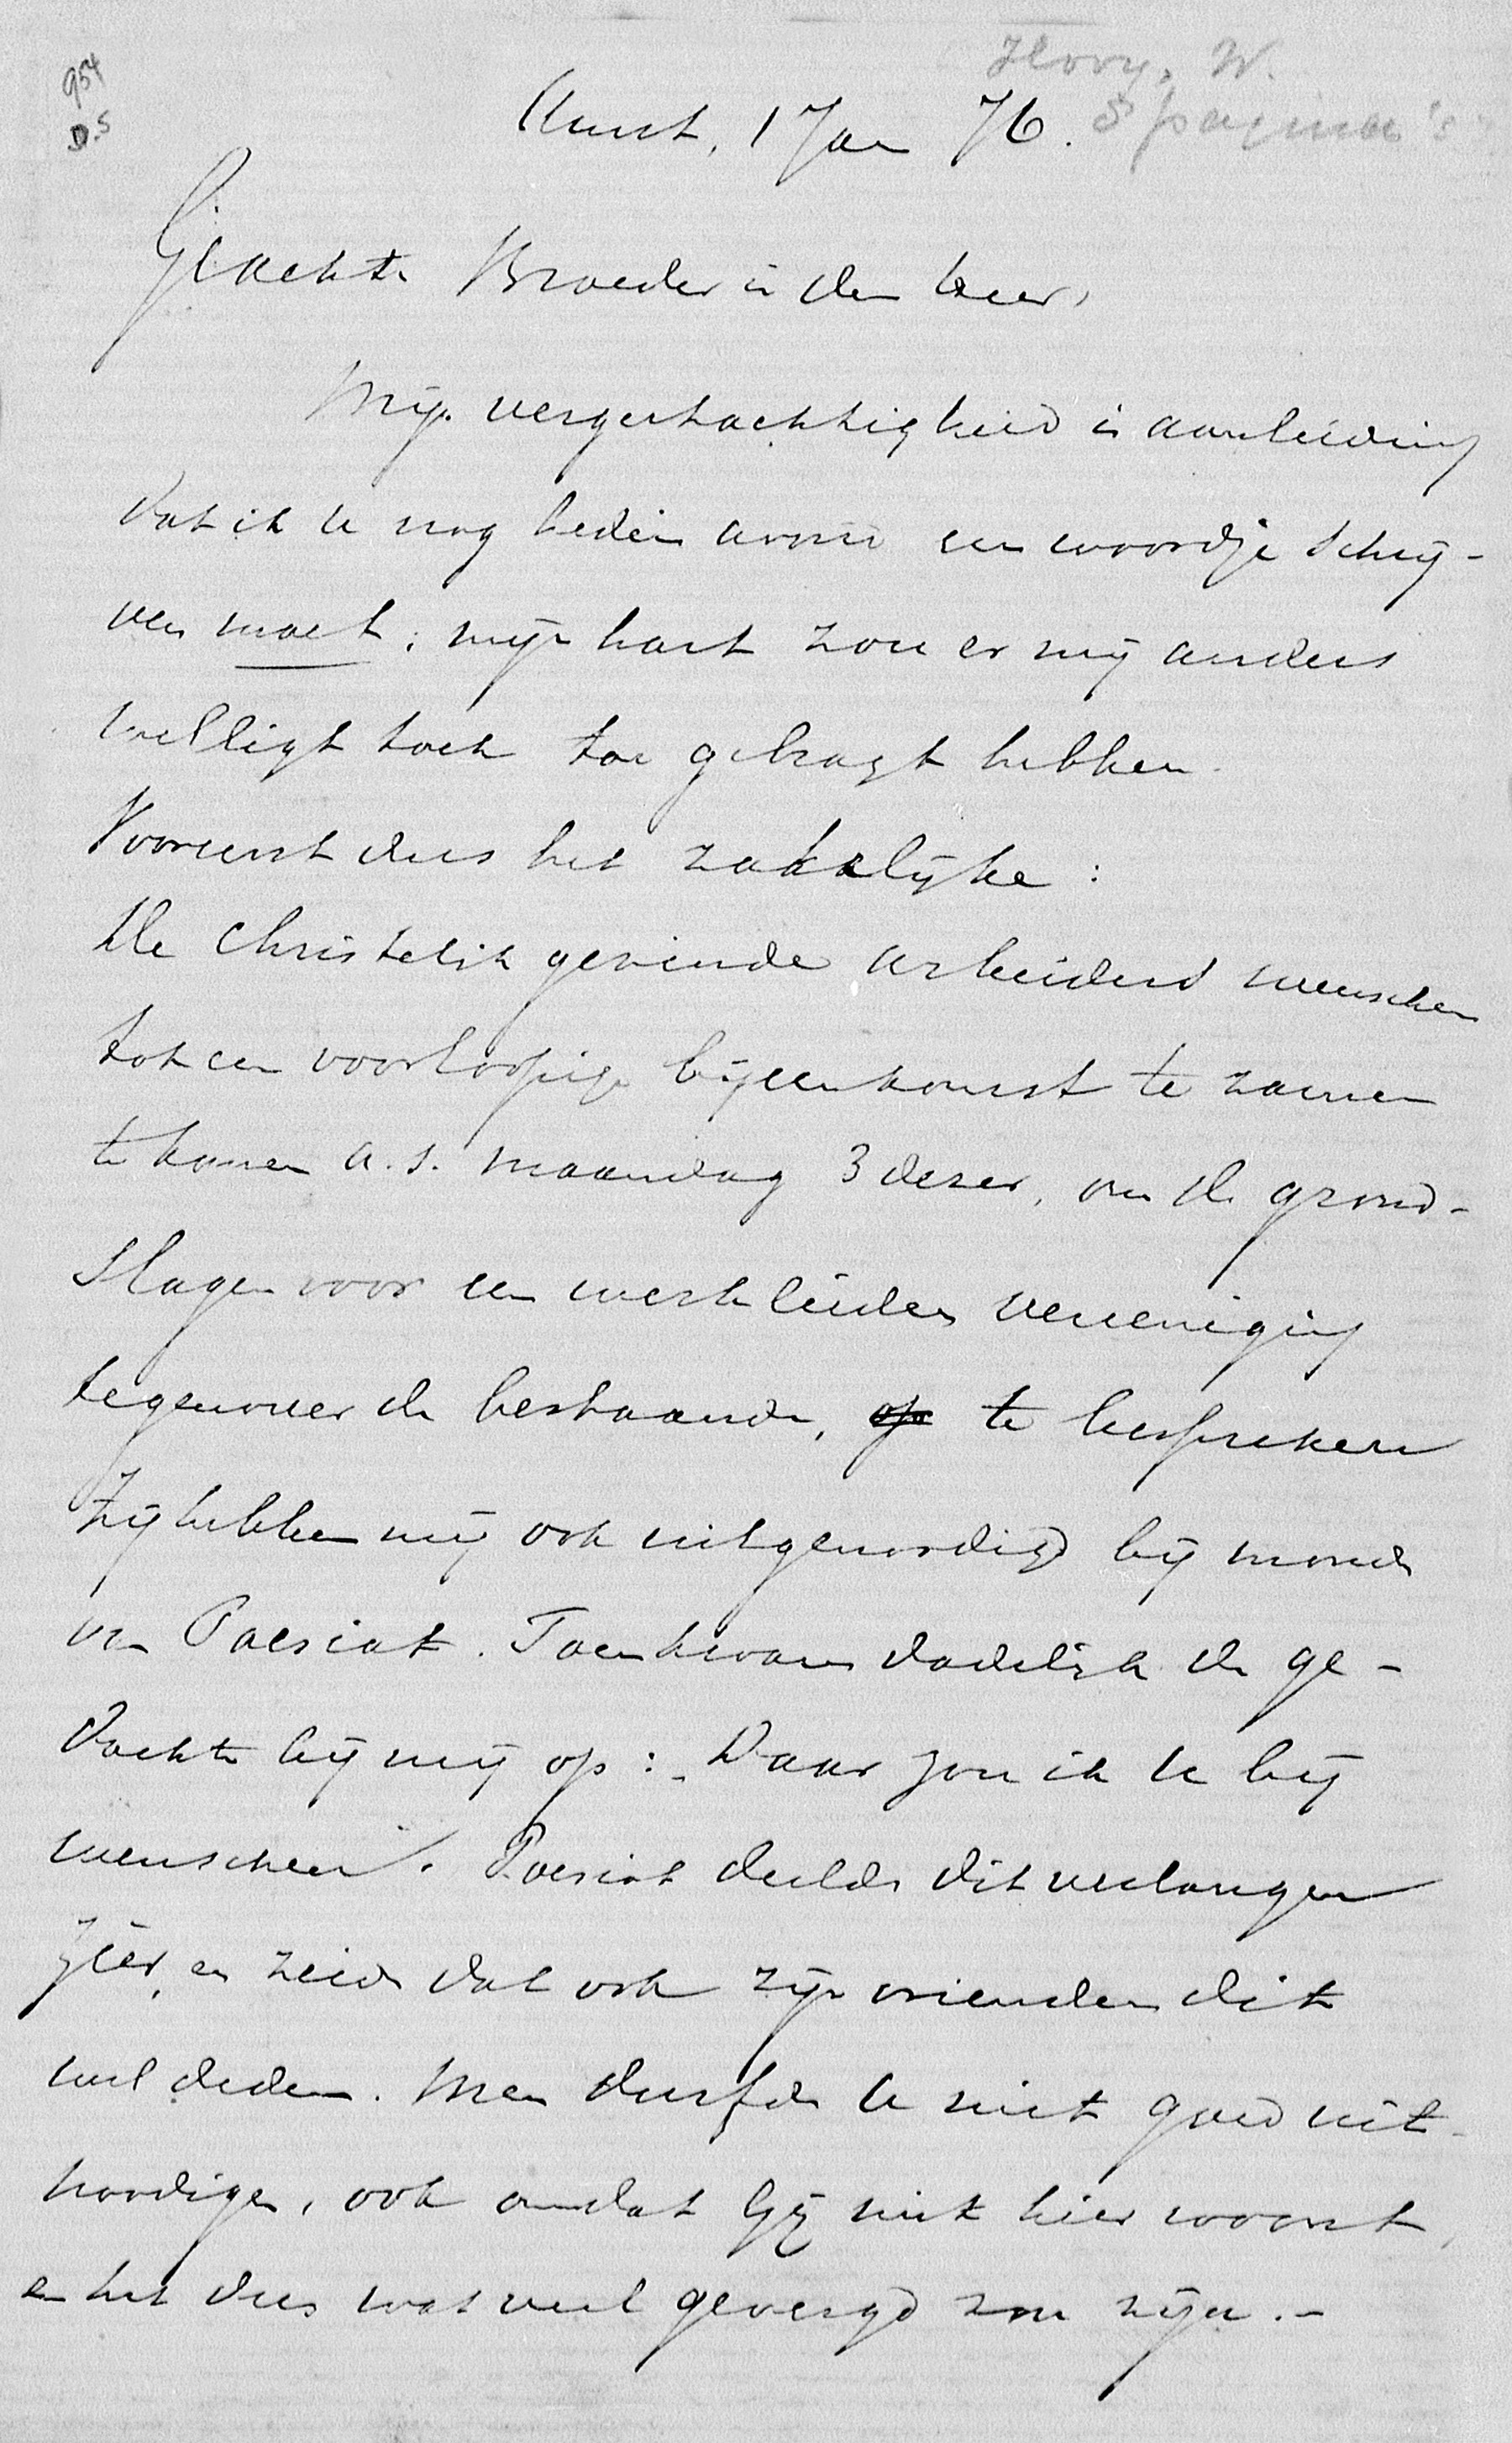 954
D.S
Hovy, W.
Amst, 1 Jan 76.
5 pagina's
Geachte Broeder in den Heer,
Mijn vergetachtigheid is aanleiding
dat ik U nog heden avond een woordje schrij-
ven moet; mijn hart zou er mij anders
welligt toch toe gebragt hebben.
Vooreerst dus het zakelijke:
De Christelijk gezinde arbeiders wenschen
tot een voorloopige bijeenkomst te zamen
te komen a.s. maandag 3 dezer, om de grond-
slagen voor een werklieden vereeniging
tegenover de bestaande, op te bespreken
Zij hebben mij ook uitgenoodigd bij monde
van Poesiat. Toen kwam dadelijk de ge-
dachte bij mij op: Daar zou ik U bij
wenschen. Poesiat deelde dit verlangen
zeer, en zeide dat ook zijn vrienden dit
wel deden. Men durfde U niet goed uit-
noodigen, ook omdat Gij niet hier woont,
en het dus wat veel gevergd zou zijn.-